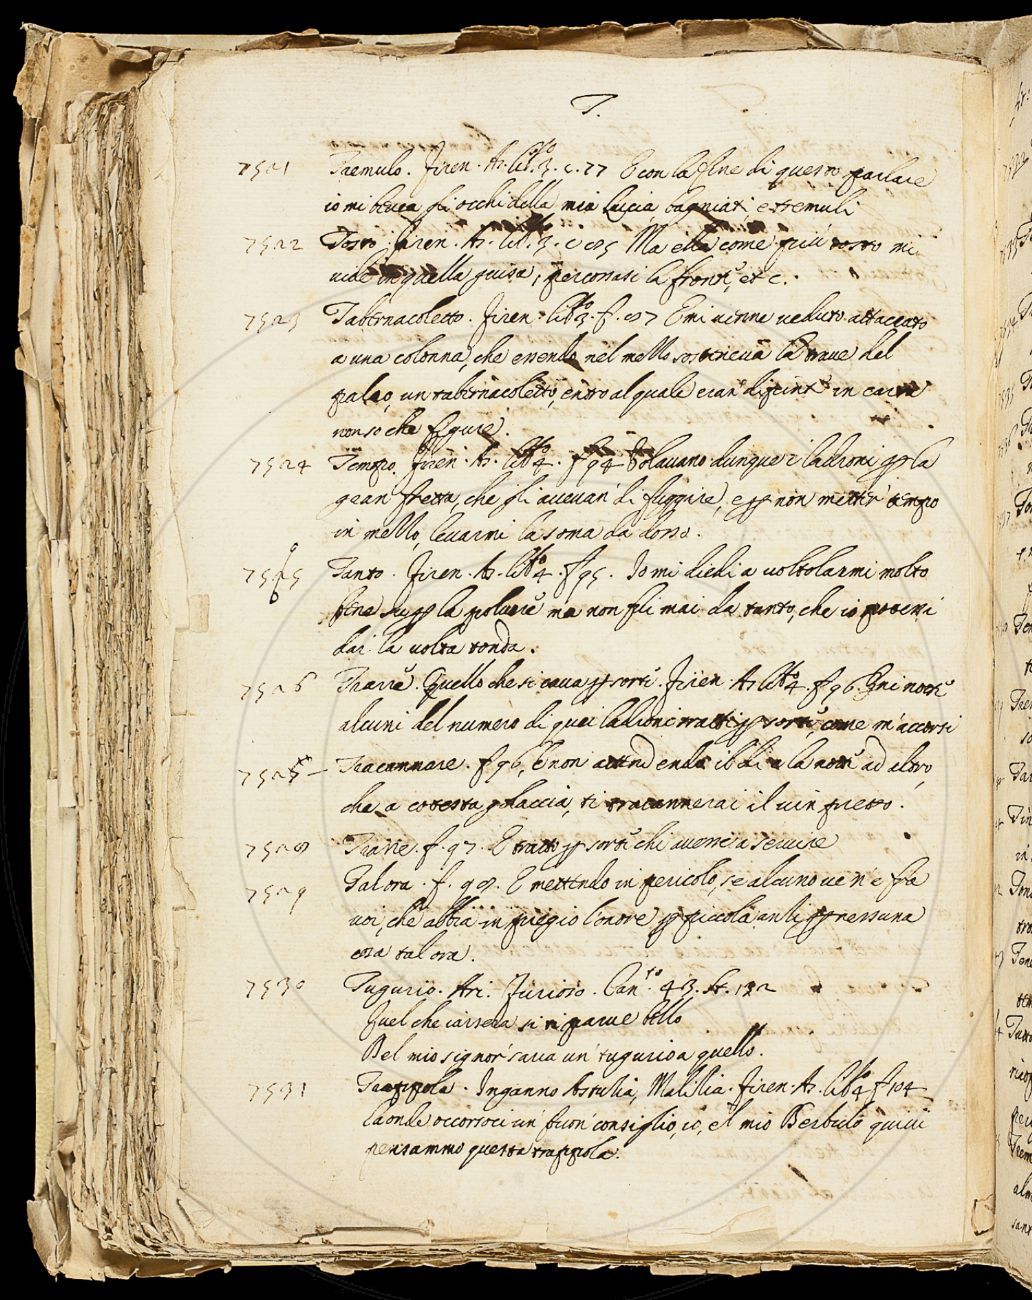 T.
7521 Tremulo. Firen. As. lib.º 3. c. 77 E con la fine di questo parlare
io mi bevea gli occhi della mia Lucia, bagniati, e tremuli
7522 Tosto, Firen. As. lib. 3. c 85 Ma ella come più tosto mi
vide in quella guisa, percotasi la fronte, et c.
7523 Tabernacoletto. Firen. lib.º 3. f. 87 E mi venne veduto attaccato
a una colonna, che essendo nel mezzo sosteneva la trave del
palco, un tabernacoletto, entro al quale eran dipinte in carte
non so che figure.
7524 Tempo. Firen. As. lib.º 4. f 94 Volavano dunque i ladroni per la
gran fretta, che gli avevan' di fuggire, e per non metter tempo
in mezzo, levarmi la soma da dosso.
7525 Tanto. Firen. As. lib.º 4. f 95. Io mi diedi a voltolarmi molto
bene su per la polvere ma non fui mai da tanto, che io potessi
dar la volta tonda.
7526 Trarre. Quello che si cava per sorte. Firen. As lib.º 4. f. 96. Ogni notte
alcuni del numero di quei ladroni tratti per sorte, come m'accorsi
7527 Tracannare. f 96, E non attendendo il dì e la notte ad altro,
che a cotesta golaccia, ti tracannerai il vin pretto.
7528 Trarre. f. 97. E tratto per sorte chi avesse a servire
7529 Talora. f. 98. E mettendo in pericolo, se alcuno ve n'e fra
voi, che abbia in pregio l'onore per piccola, anzi per nessuna
cosa talora.
7530 Tugurio. Ari. Furioso. Can.to 43. St. 132
Quel che iarsera si ti parve bello
Del mio signor saria un' tugurio a quello.
7531 Trappola. Inganno Astuzia, Malizia. Firen. As. lib.º 4 f 104
Laonde occorsoci un' buon' consiglio, io, e'l mio Berbulo quivi
pensammo questa trappola.